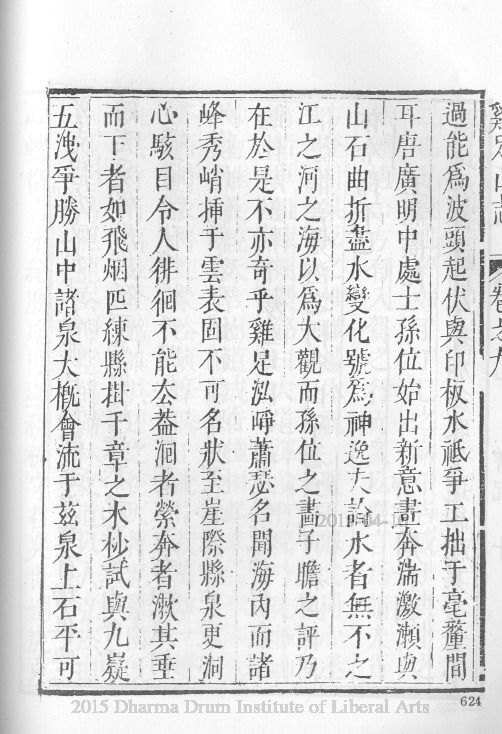 雞足山志 卷之九
過能爲波頭起伏與印板水祗爭工拙于毫釐間
耳唐廣明中處士孫位始出新意畫奔湍激瀨與
山石曲折盡水變化號爲神逸夫論水者無不之
江之河之海以爲大觀而孫位之畵子瞻之評乃
在於是不亦奇乎雞足泓崢蕭瑟名聞海內而諸
峰秀峭揷于雲表固不可名狀至崖際縣泉更洞
心駭目令人徘徊不能去葢洄者縈奔者漱其埀
而下者如飛烟匹練縣掛千章之木杪試與九嶷
五洩爭勝山中諸泉大槪會流于茲泉上石平可
624
2015 Dharma Drum Institute of Liberal Arts